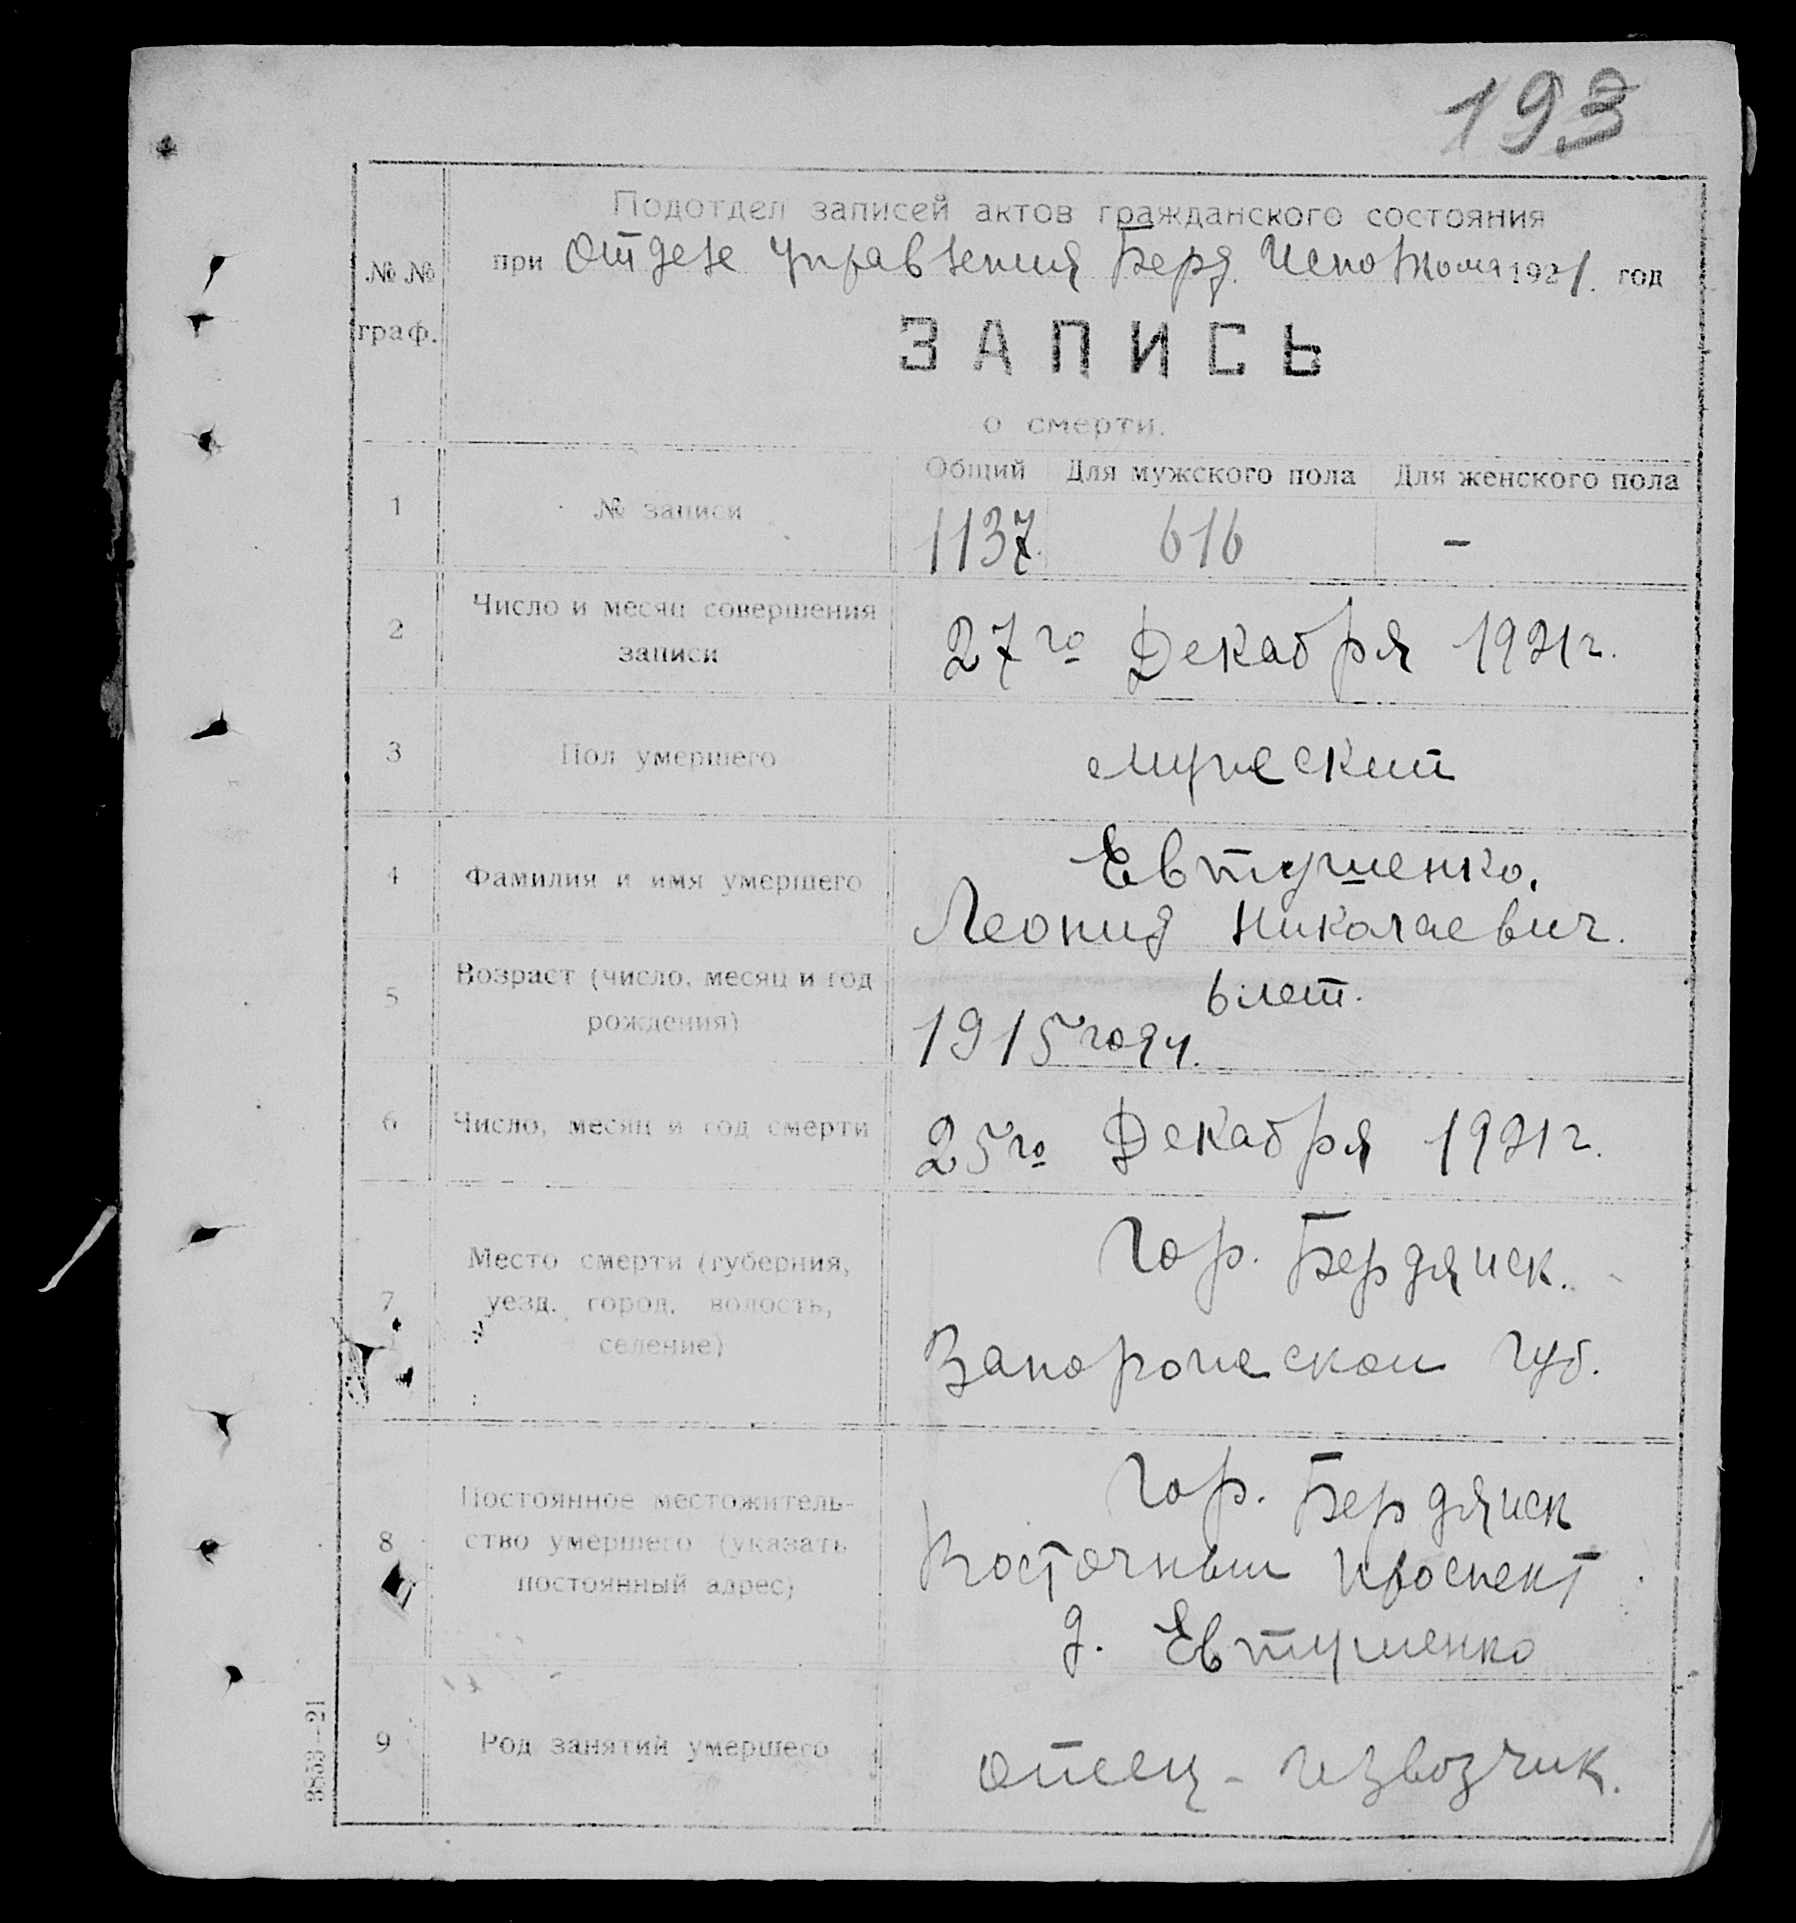 193
Подотдел записей актов гражданского состояния
при Отделе Управления Берд. Исполкома 1921. год
№№ граф.
ЗАПИСЬ
о смерти.
Общий Для мужского пола Для женского пола
1 № записи 1137 616 -
2 Число и месяц совершения
записи
27го Декабря 1921 г.
3 Пол умершего мужеский
4 Фамилия и имя умершего
Евтушенко.
Леонид Николаевич.
5 Возраст (число, месяц и год
рождения)
6 лет.
1915 году.
6 Число, месяц и год смерти 25го Декабря 1921 г.
7 Место смерти (губерния,
уезд, город, волость,
селение)
Гор. Бердянск.
Запорожеской Губ.
8 Постоянное местожитель-
ство умершего (указать
постоянный адрес)
Гор. Бердянск
Восточный Проспект
д. Евтушенко
9 Род занятий умершего отец - извозчик.
3853-21